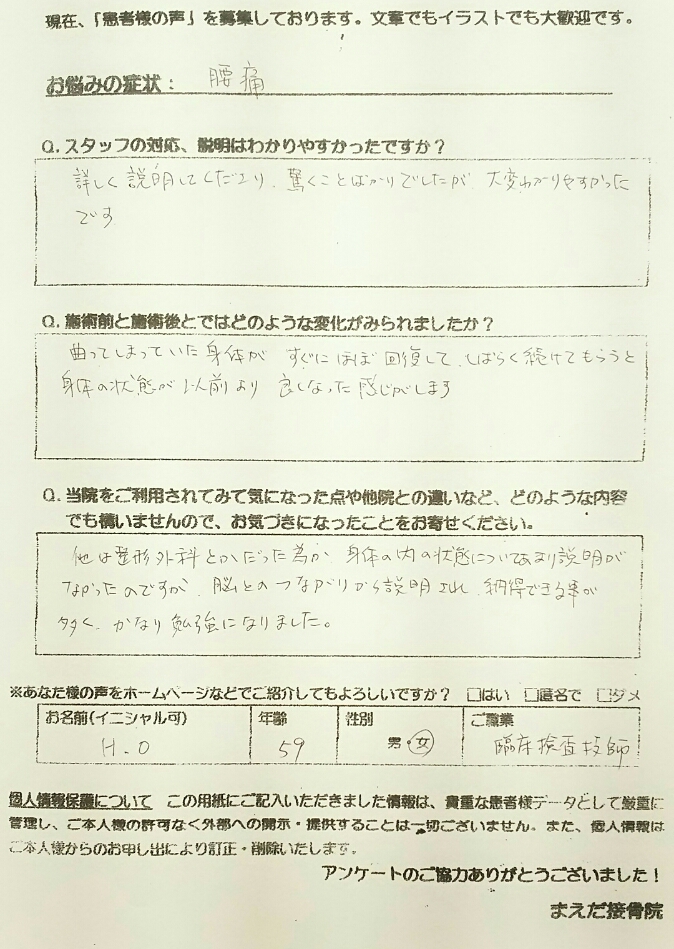 現在、「患者様の声」を募集しております。文章でもイラストでも大歓迎です。
お悩みの症状： 腰痛
Q. スタッフの対応、説明はわかりやすかったですか？
詳しく説明してくださり、驚くことばかりでしたが、大変わかりやすかった
です
Q. 施術前と施術後とではどのような変化がみられましたか？
曲ってしまっていた身体が すぐにほぼ回復して、しばらく続けてもらうと
身体の状態が以前より 良くなった感じがします
Q. 当院をご利用されてみて気になった点や他院との違いなど、どのような内容
でも構いませんので、お気づきになったことをお寄せください。
他は整形外科とかだった為か、身体の内の状態についてあまり説明が
なかったのですが、脳とのつながりから説明され、納得できる事が
多く、かなり勉強になりました。
※あなた様の声をホームページなどでご紹介してもよろしいですか？ □はい □匿名で □ダメ
お名前(イニシャル可) 年齢 性別 ご職業
H.O 59 男・女 臨床検査技師
個人情報保護について この用紙にご記入いただきました情報は、貴重な患者様データとして厳重に
管理し、ご本人様の許可なく外部への開示・提供することは一切ございません。また、個人情報は
ご本人様からのお申し出により訂正・削除いたします。
アンケートのご協力ありがとうございました！
まえだ接骨院